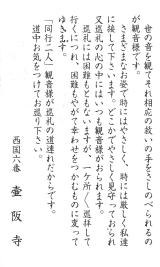 世の音を観てそれ相応の救いの手をさしのべられるの
が観音様です。
さまざまなお姿で時にはやさしく、時には厳しく私達
に接して下さいます。どこかでかならずお見守っておられ
又巡礼の道の中にも、いつも観音様がおられます。
巡礼には困難もともないますが、一ケ所一ケ所巡拝して
行くにつれ、困難もやがて幸わせをつかむものに変って
ゆきます。
「同行二人」観音様が巡礼の道連れだからです。
道中お気をつけてお巡り下さい。
西国六番　壷阪寺